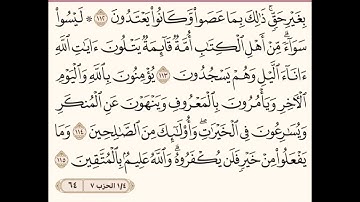 بِغَيْرِ حَقٍّۚ ذَٰلِكَ بِمَا عَصَوا۟ وَّكَانُوا۟ يَعْتَدُونَ ١١٢ ۞ لَيْسُوا۟
سَوَآءًۗ مِّنْ أَهْلِ ٱلْكِتَٰبِ أُمَّةٌ قَآئِمَةٌ يَتْلُونَ ءَايَٰتِ ٱللَّهِ
ءَانَآءَ ٱلَّيْلِ وَهُمْ يَسْجُدُونَ ١١٣ يُؤْمِنُونَ بِٱللَّهِ وَٱلْيَوْمِ
ٱلْءَاخِرِ وَيَأْمُرُونَ بِٱلْمَعْرُوفِ وَيَنْهَوْنَ عَنِ ٱلْمُنكَرِ
وَيُسَٰرِعُونَ فِى ٱلْخَيْرَٰتِۖ وَأُو۟لَٰٓئِكَ مِنَ ٱلصَّٰلِحِينَ ١١٤ وَمَا
يَفْعَلُوا۟ مِنْ خَيْرٍ فَلَن يُكْفَرُوهُۗ وَٱللَّهُ عَلِيمٌۢ بِٱلْمُتَّقِينَ ١١٥
١/٤ الحزب ٧
٦٤